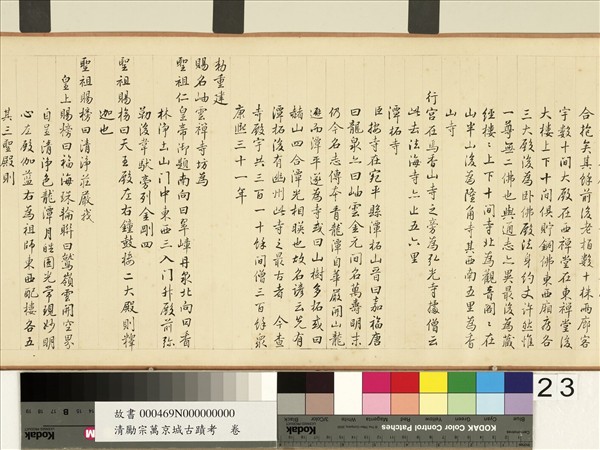 合抱矣其餘前後老柏數十株兩廊客
字數十間大殿在西禪堂在東禪堂後
大樓上下十間俱貯銅佛東西廂房各
三大殿後為卧佛殿法身約丈許然惟
尊無二佛也與通志亦異最後為藏
經樓上下十間寺北為觀音閣在
山半山後為陸角寺其西南五里為香
山寺
行宮在馬香山寺之旁為弘光寺據僧云
此去法海寺亦止五六里
潭柘寺
臣按寺在宛平縣潭柘山晉曰嘉福唐
曰龍泉亦曰岫雲金元間名萬壽明末
仍今名志傳本青龍潭自華嚴開山龍
避而潭平遂為寺或曰山樹多柘或曰
赭山四合潭光相映也故名諺云先有
潭柘後有幽州此寺之最古者 今查
寺殿宇共三百一十餘間僧三百餘眾
康熙三十一年
勅重建
賜名岫雲禪寺坊為
聖祖仁皇帝御題南向曰翠嶂丹泉北向曰香
林淨土山門中東西三入門升殿前弥
勒後韋馱旁列金剛四
聖祖賜榜曰天王殿左右鐘鼓樓二大殿則釋
迦也
聖祖賜榜曰清淨莊嚴我
皇上賜榜曰福海珠輪聯曰鷲嶺雲開空界
自呈清淨色龍潭月皓圓光常現妙明
心左殿伽藍右為祖師東西配樓各五
其三聖殿則
故書 000469N000000000
清勵宗萬京城古蹟考 卷
23
Kodak
Kodak
KODAK Color Control Patches
Blue
Cyan
Green
Yellow
Red
Magenta
White
3/Color
Black